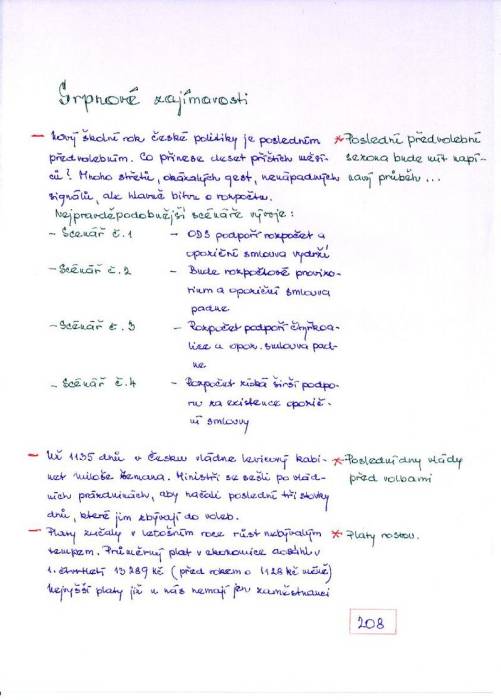 Srpnové zajímavosti
— Nový školní rok české politiky je posledním
předvolebním. Co přinese deset příštích měsí-
ců? Mnoho střetů, okázalých gest, nenápadných
signálů, ale hlavně bitvu o rozpočtu.
* Poslední předvolební
sezona bude mít napí-
navý průběh ...
Nejpravděpodobnější scénáře vývoje:
– Scénář č.1 – ODS podpoří rozpočet a
opoziční smlouva vydrží
– Scénář č.2 – Bude rozpočtové provizo-
rium a opoziční smlouva
padne
– Scénář č.3 – Rozpočet podpoří čtyřkoa-
lice a opoz. smlouva pad-
ne
– Scénář č.4 – Rozpočet získá širší podpo-
ru za existence opozič-
ní smlouvy
— Už 1135 dnů v Česku vládne levicový kabi-
net Miloše Zemana. Ministři se sešli po vlád-
ních prázdninách, aby načali poslední tři stovky
dnů, které jim zbývají do voleb.
* Poslední dny vlády
před volbami
— Platy začaly v letošním roce růst nebývalým
tempem. Průměrný plat v ekonomice dosáhl v
1. čtvrtletí 13 289 Kč (před rokem o 1128 Kč méně)
Nejvyšší platy již u nás nemají jen zaměstnanci
* Platy rostou.
208